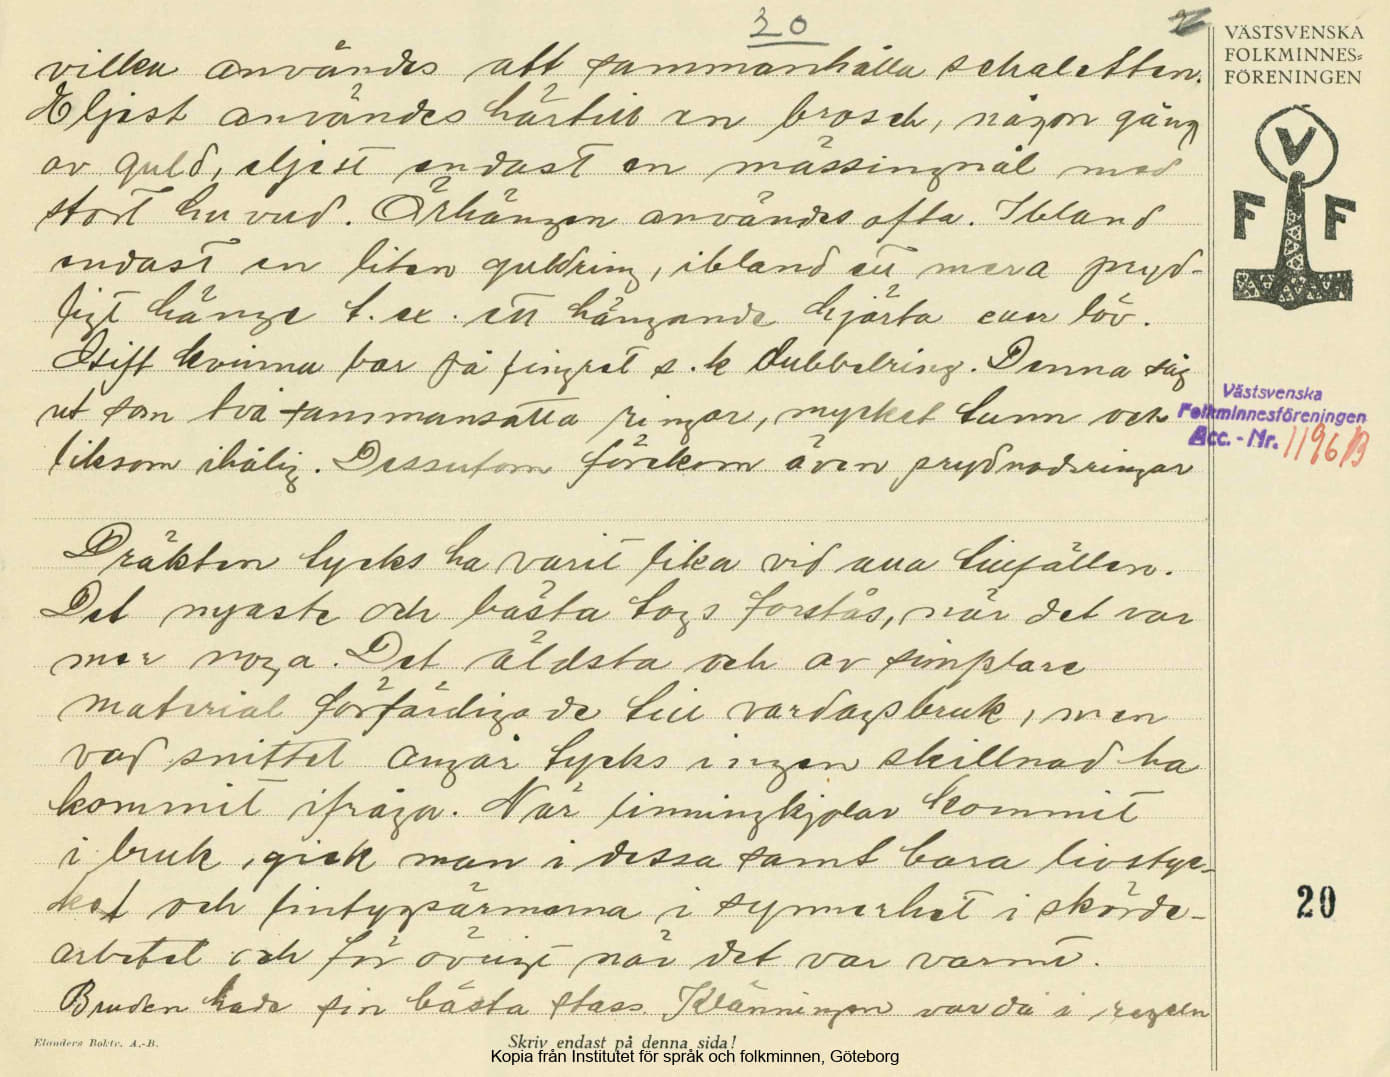 20
VÄSTSVENSKA
FOLKMINNES=
FÖRENINGEN
vilka användes att sammanhålla schaletten.
Eljest användes härtill en brosch, någon gång
av guld, eljest endast en mässingnål med
stort huvud. Örhängen användes ofta. Ibland
endast en liten guldring, ibland ett mera pryd-
ligt hänge t.ex. ett hängande hjärta eller löv.
Gift kvinna bar på fingret s.k dubbelring. Denna såg
ut som två sammansatta ringar, mycket tunn och
liksom ihålig. Dessutom förekom även prydnadsringar
V
F F
Västsvenska
Folkminnesföreningen
Acc. - Nr. 1196 B
Dräkten tycks ha varit lika vid alla tillfällen.
Det nyaste och bästa togs förstås, när det var
mer noga. Det äldsta och av simplare
material förfärdigade till vardagsbruk, men
vad snittet angår tycks ingen skillnad ha
kommit ifråga. När linningkjolar kommit
i bruk, gick man i dessa samt bara livstyc-
ket och lintygsärmarna i synnerhet i skörde-
arbetet och för övrigt när det var varmt.
Bruden hade sin bästa stass. Klänningen var då i regeln
20
Elanders Boktr. A.-B.
Skriv endast på denna sida!
Kopia från Institutet för språk och folkminnen, Göteborg